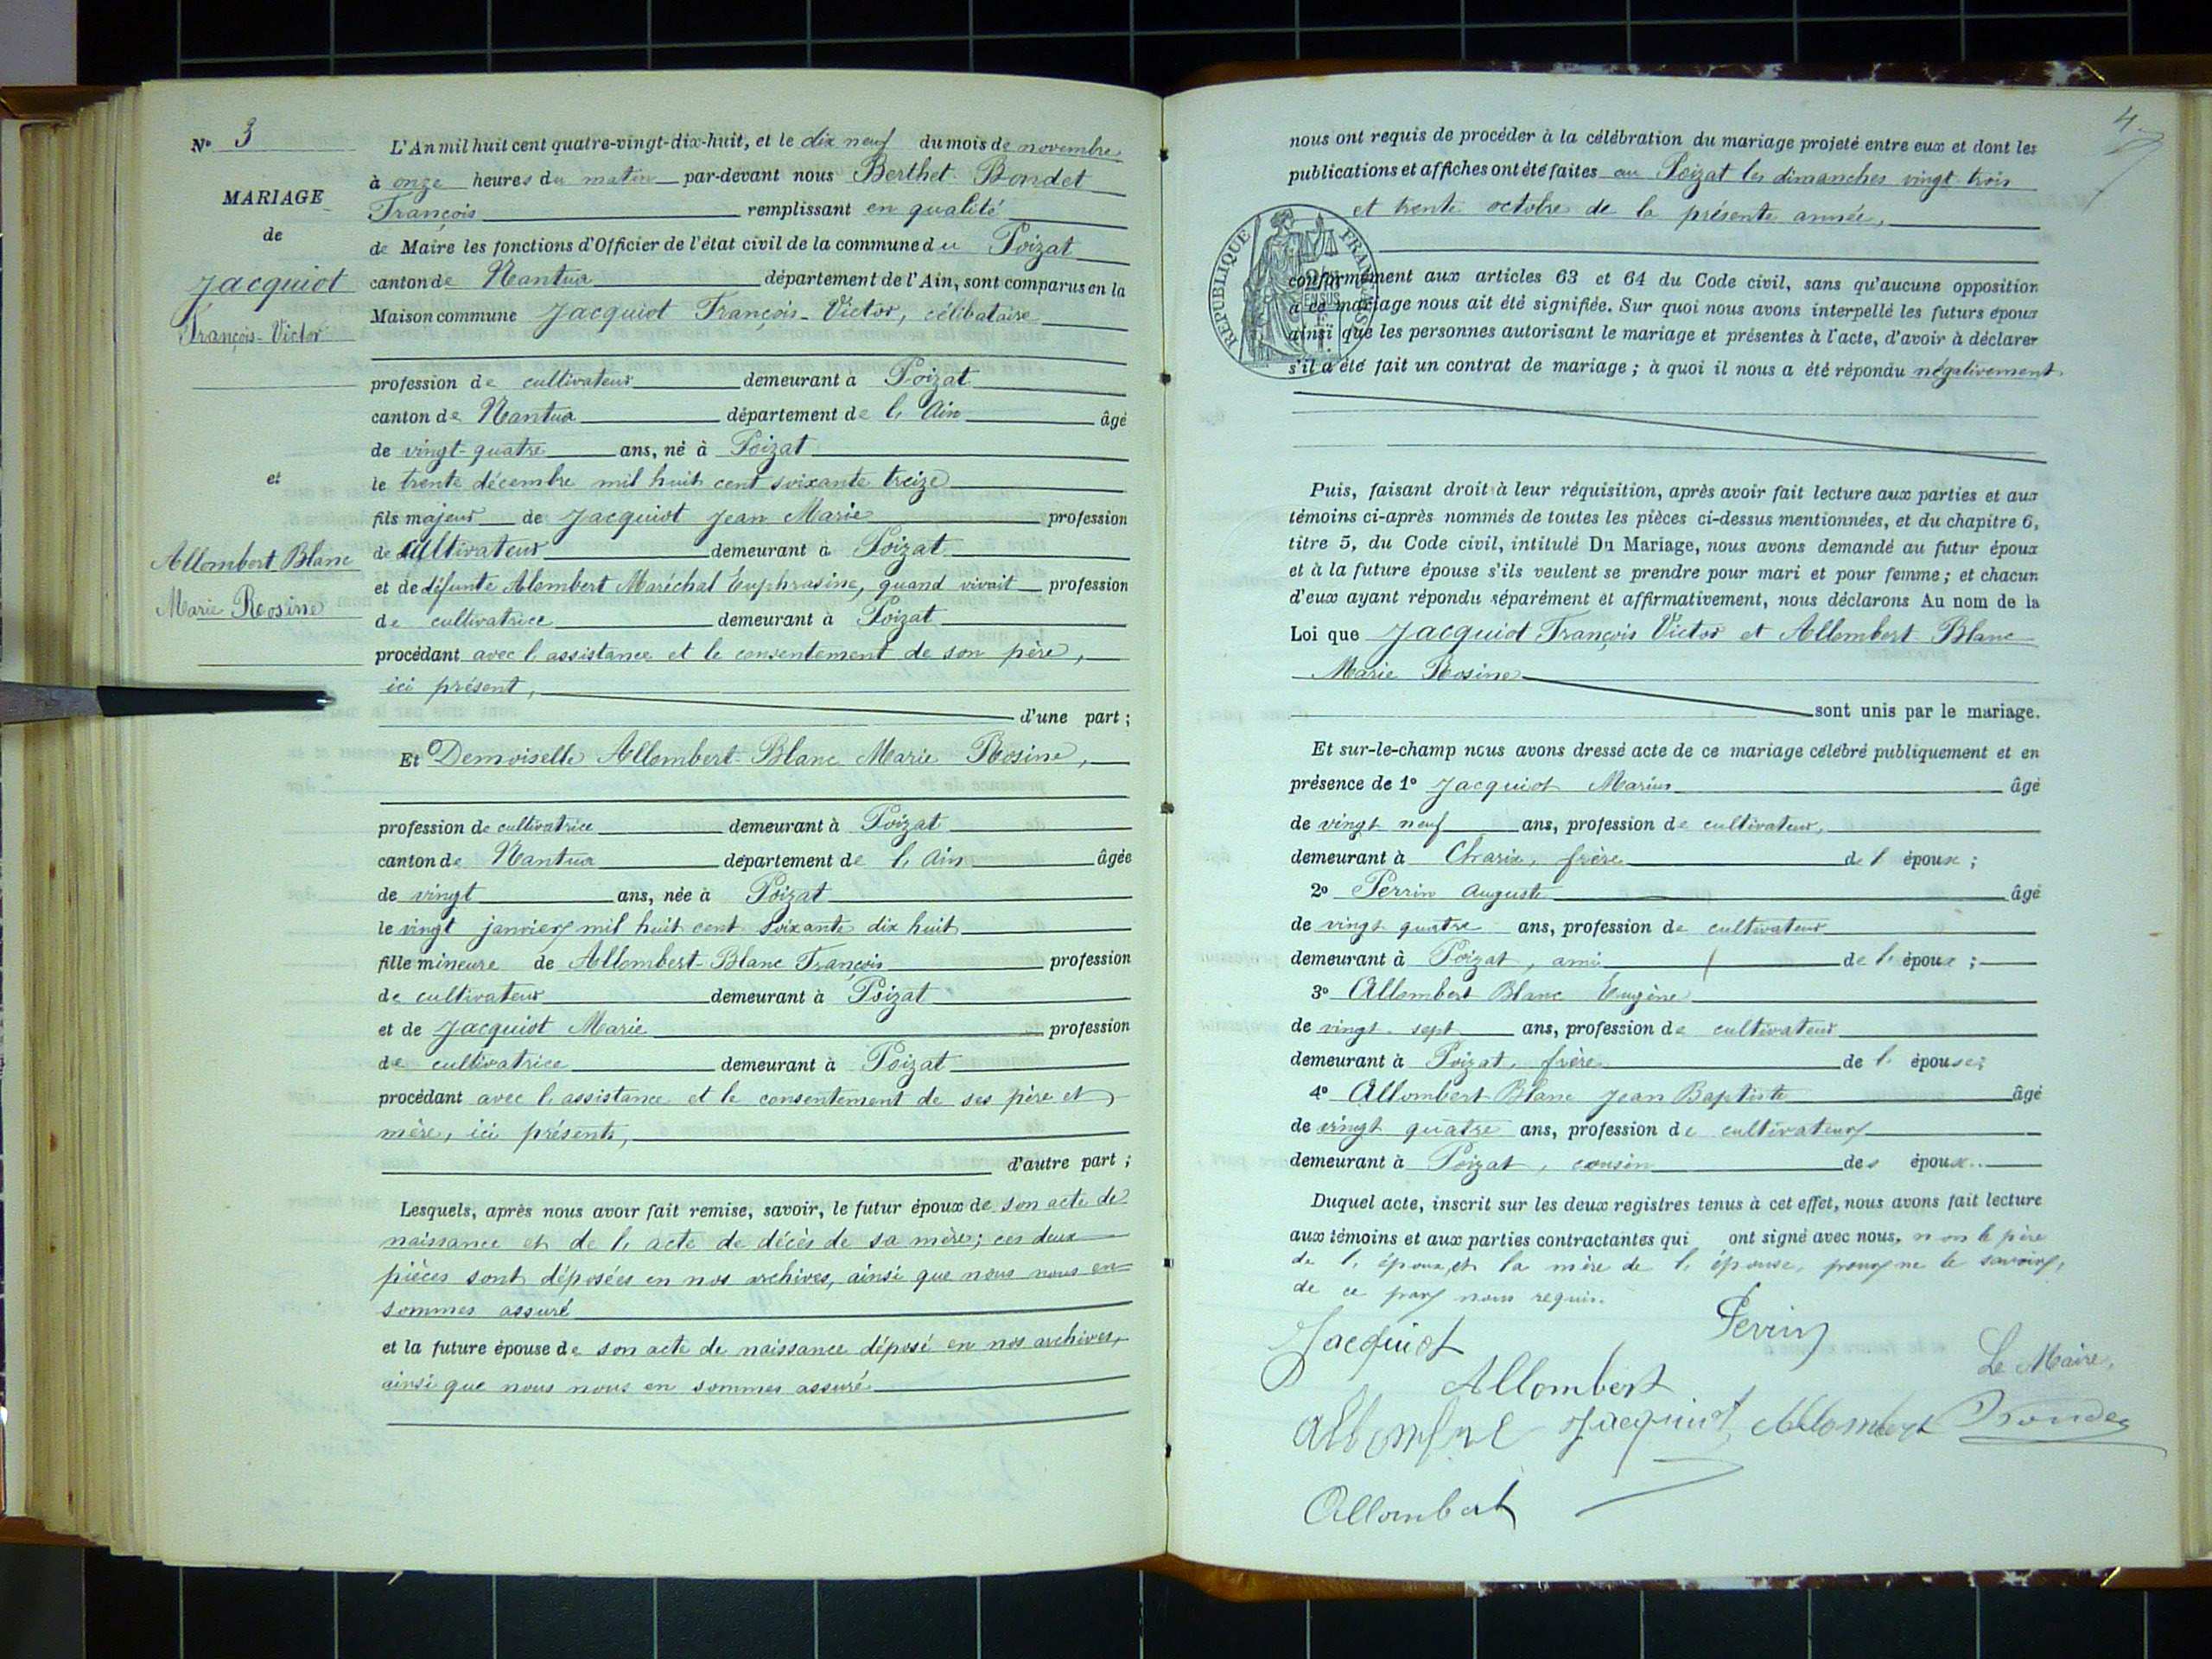 N° 3
MARIAGE
de
Jacquiot
François-Victor
et
Allombert Blanc
Marie Rosine
L'An mil huit cent quatre-vingt-dix-huit, et le dix neuf du mois de novembre
à onze heures du matin par-devant nous Berthet-Bondet
François remplissant en qualité
de Maire les fonctions d'Officier de l'état civil de la commune du Poizat
canton de Nantua département de l'Ain, sont comparus en la
Maison commune Jacquiot François-Victor, célibataire
profession de cultivateur demeurant à Poizat
canton de Nantua département de l'Ain âgé
de vingt-quatre ans, né à Poizat
le trente décembre mil huit cent soixante treize
fils majeur de Jacquiot Jean Marie profession
de cultivateur demeurant à Poizat
et de défunte Alombert Maréchal Euphrasine, quand vivait profession
de cultivatrice demeurant à Poizat
procédant avec l'assistance et le consentement de son père,
ici présent,
d'une part ;
Et Demoiselle Allombert-Blanc Marie Rosine,
profession de cultivatrice demeurant à Poizat
canton de Nantua département de l'Ain âgée
de vingt ans, née à Poizat
le vingt janvier mil huit cent soixante dix huit
fille mineure de Allombert-Blanc François profession
de cultivateur demeurant à Poizat
et de Jacquiot Marie profession
de cultivatrice demeurant à Poizat
procédant avec l'assistance et le consentement de ses père et
mère, ici présents,
d'autre part ;
Lesquels, après nous avoir fait remise, savoir, le futur époux de son acte de
naissance et de l'acte de décès de sa mère; ces deux
pièces sont déposées en nos archives, ainsi que nous nous en
sommes assuré
et la future épouse de son acte de naissance déposé en nos archives,
ainsi que nous nous en sommes assuré.
4
nous ont requis de procéder à la célébration du mariage projeté entre eux et dont les
publications et affiches ont été faites au Poizat les dimanches vingt-trois
et trente octobre de la présente année,
RÉPUBLIQUE FRANÇAISE
conformément aux articles 63 et 64 du Code civil, sans qu'aucune opposition
à ce mariage nous ait été signifiée. Sur quoi nous avons interpellé les futurs époux
ainsi que les personnes autorisant le mariage et présentes à l'acte, d'avoir à déclarer
s'il a été fait un contrat de mariage ; à quoi il nous a été répondu négativement
Puis, faisant droit à leur réquisition, après avoir fait lecture aux parties et aux
témoins ci-après nommés de toutes les pièces ci-dessus mentionnées, et du chapitre 6,
titre 5, du Code civil, intitulé Du Mariage, nous avons demandé au futur époux
et à la future épouse s'ils veulent se prendre pour mari et pour femme ; et chacun
d'eux ayant répondu séparément et affirmativement, nous déclarons Au nom de la
Loi que Jacquiot François Victor et Allombert-Blanc
Marie Rosine
sont unis par le mariage.
Et sur-le-champ nous avons dressé acte de ce mariage célébré publiquement et en
présence de 1° Jacquiot Marius âgé
de vingt neuf ans, profession de cultivateur,
demeurant à Charix, frère de l'époux ;
2° Perrin Auguste âgé
de vingt quatre ans, profession de cultivateur
demeurant à Poizat, ami de l'époux ;
3° Allombert Blanc Eugène
de vingt-sept ans, profession de cultivateur
demeurant à Poizat, frère de l'épouse ;
4° Allombert-Blanc Jean Baptiste âgé
de vingt quatre ans, profession de cultivateur
demeurant à Poizat, cousin des époux.
Duquel acte, inscrit sur les deux registres tenus à cet effet, nous avons fait lecture
aux témoins et aux parties contractantes qui ont signé avec nous, non le père
de l'époux, et la mère de l'épouse, pour ne le savoir,
de ce par nous requis.
Jacquiot
Perrin
Le Maire,
Allombert
Jacquiot
Allombert
Bondet
Allombert